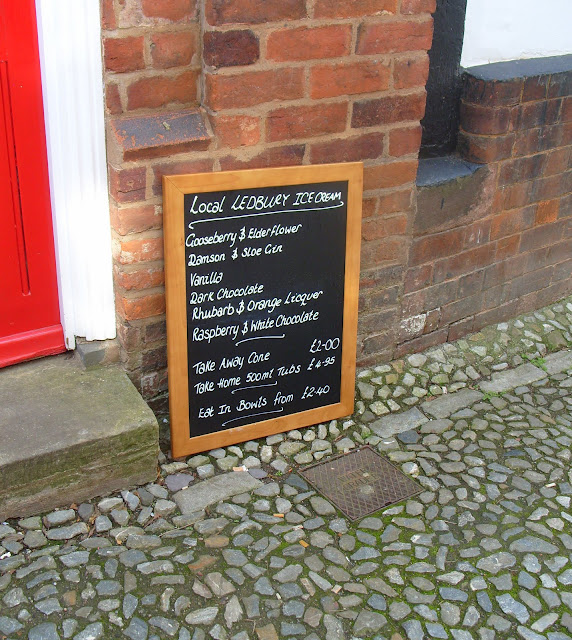 Local LEDBURY ICE CREAM
Gooseberry & Elderflower
Damson & Sloe Gin
Vanilla
Dark Chocolate
Rhubarb & Orange Licquer
Raspberry & White Chocolate
Take Away Cone £2-00
Take Home 500ml Tubs £4-95
Eat In Bowls from £2-40